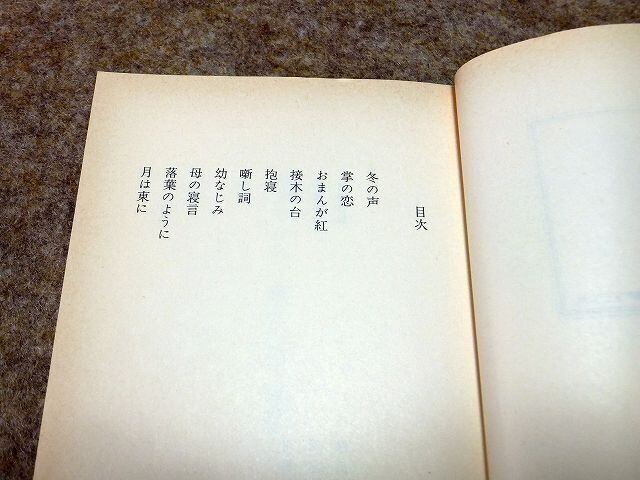 目次
冬の声
掌の恋
おまんが紅
接木の台
抱寝
噺し詞
幼なじみ
母の寝言
落葉のように
月は東に